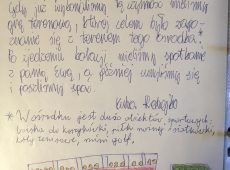 Gdy już wykonaliśmy tę czynność mieliśmy
grę terenową, której celem było zapo-
znanie się z terenem tego ośrodka.*
Po zjedzeniu kolacji mieliśmy spotkanie
z panią Ewą, a później umyliśmy się
i poszliśmy spać.
Kuba
* W ośrodku jest dużo obiektów sportowych:
boisko do koszykówki, piłki nożnej i siatkówki,
korty tenisowe, mini golf,